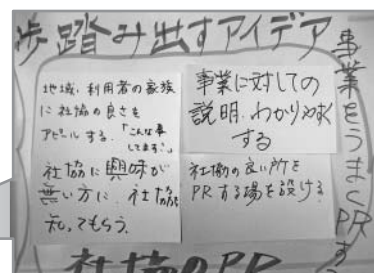 歩踏み出すアイデア
地域、利用者の家族
に社協の良さを
アピールする。「こんな事
してます!」
社協に興味が
無い方に、社協を
知ってもらう。
事業に対しての
説明、わかりやすく
する
社協の良い所を
PRする場を設ける
事業をうまくPRす
社協のPR